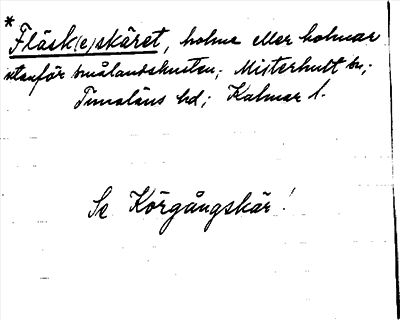 * Fläsk(e)skäret, holme eller holmar
utanför Smålandskusten; Misterhult sn;
Tunaläns hd; Kalmar l.
Se Körgångskär!